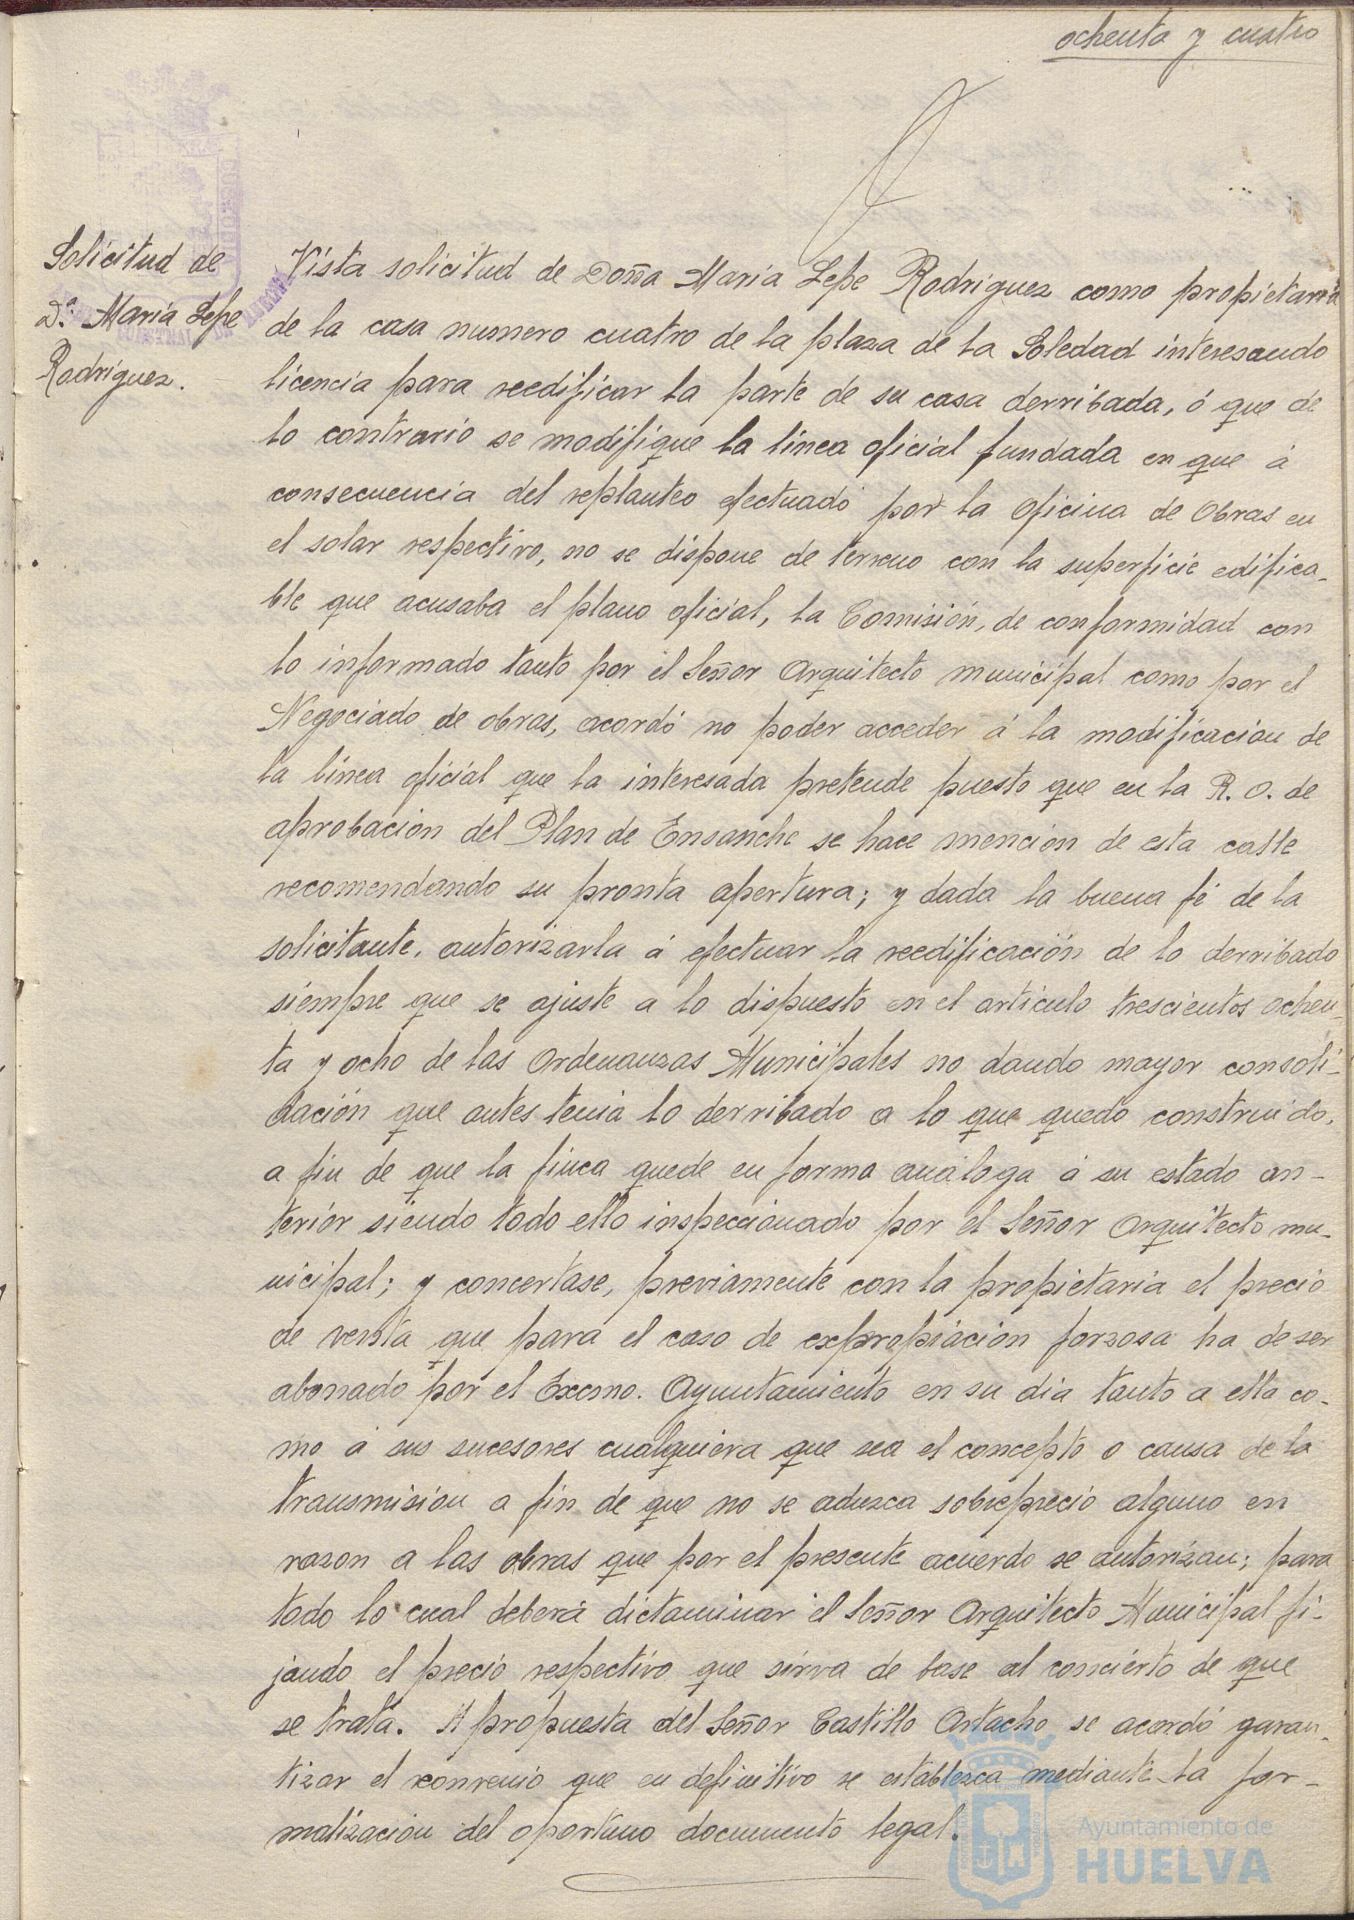 ochenta y cuatro
Solicitud de
Dª. María Lepe
Rodriguez.
Vista solicitud de Doña Maria Lepe Rodriguez como propietaria
de la casa numero cuatro de la plaza de la Soledad interesando
licencia para reedificar la parte de su casa derribada, ó que de
lo contrario se modifique la línea oficial fundada en que á
consecuencia del replanteo efectuado por la Oficina de Obras en
el solar respectivo, no se dispone de terreno con la superficie edifica-
ble que acusaba el plano oficial, la Comisión, de conformidad con
lo informado tanto por el Señor Arquitecto municipal como por el
Negociado de obras, acordó no poder acceder á la modificacion de
la línea oficial que la interesada pretende puesto que en la R. O. de
aprobación del Plan de Ensanche se hace mención de esta calle
recomendando su pronta apertura; y dada la buena fé de la
solicitante, autorizarla á efectuar la reedificación de lo derribado
siempre que se ajuste a lo dispuesto en el artículo trescientos ochen-
ta y ocho de las Ordenanzas Municipales no dando mayor consoli-
dación que antes tenia lo derribado a lo que quedo construido,
a fin de que la finca quede en forma análoga á su estado an-
terior siendo todo ello inspeccionado por el Señor Arquitecto mu-
nicipal; y concertase, previamente con la propietaria el precio
de venta que para el caso de expropiación forzosa ha de ser
abonado por el Excmo. Ayuntamiento en su dia tanto a ella co-
mo á sus sucesores cualquiera que sea el concepto o causa de la
transmision a fin de que no se aduzca sobreprecio alguno en
razon a las obras que por el presente acuerdo se autorizan; para
todo lo cual deberá dictaminar el Señor Arquitecto Municipal fi-
jando el precio respectivo que sirva de base al concierto de que
se trata. A propuesta del Señor Castillo Artacho se acordó garan-
tizar el convenio que en definitivo se establezca mediante la for-
malización del oportuno documento legal.
Ayuntamiento de
HUELVA